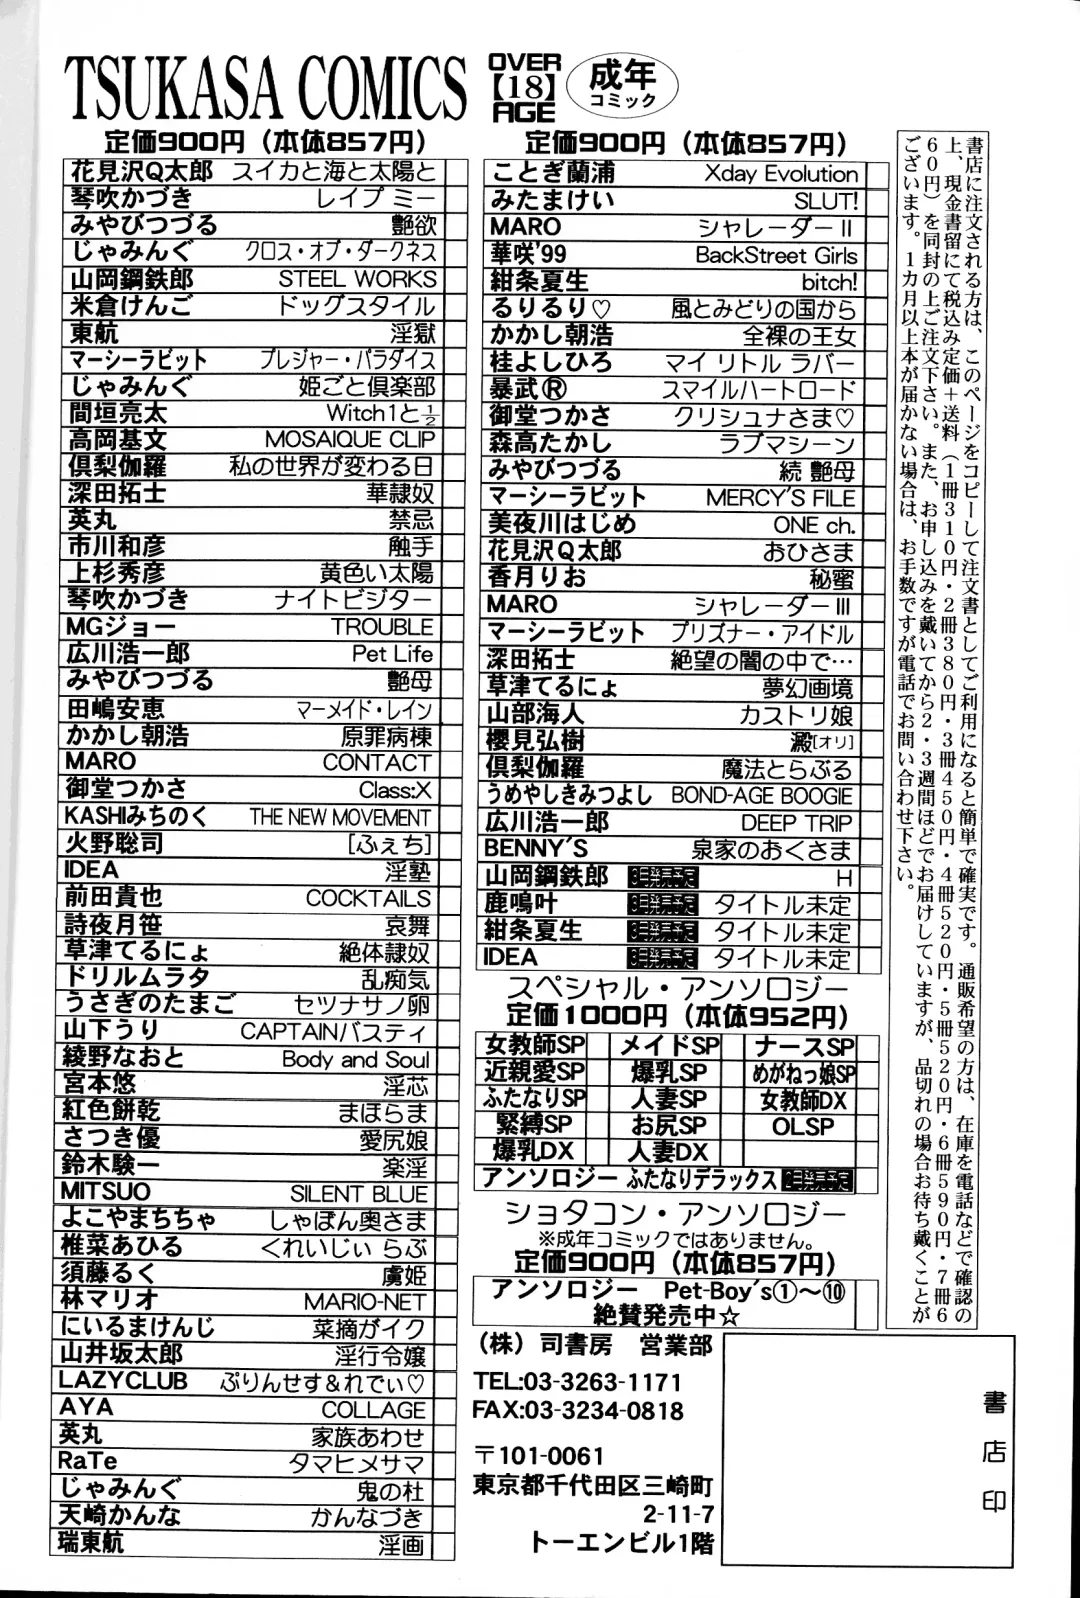 TSUKASA COMICS
OVER
【18】
AGE
成年
コミック
定価900円（本体857円）
花見沢Q太郎 スイカと海と太陽と
琴吹かづき レイプ ミー
みやびつづる 艶欲
じゃみんぐ クロス・オブ・ダークネス
山岡鋼鉄郎 STEEL WORKS
米倉けんご ドッグスタイル
東航 淫獄
マーシーラビット プレジャー・パラダイス
じゃみんぐ 姫ごと倶楽部
間垣亮太 Witch1と½
高岡基文 MOSAIQUE CLIP
倶梨伽羅 私の世界が変わる日
深田拓士 華隷奴
英丸 禁忌
市川和彦 触手
上杉秀彦 黄色い太陽
琴吹かづき ナイトビジター
MGジョー TROUBLE
広川浩一郎 Pet Life
みやびつづる 艶母
田嶋安恵 マーメイド・レイン
かかし朝浩 原罪病棟
MARO CONTACT
御堂つかさ Class:X
KASHIみちのく THE NEW MOVEMENT
火野聡司 [ふぇち]
IDEA 淫塾
前田貴也 COCKTAILS
詩夜月笹 哀舞
草津てるにょ 絶体隷奴
ドリルムラタ 乱痴気
うさぎのたまご セツナサノ卵
山下うり CAPTAINバスティ
綾野なおと Body and Soul
宮本悠 淫芯
紅色餅乾 まほらま
さつき優 愛尻娘
鈴木験一 楽淫
MITSUO SILENT BLUE
よこやまちちゃ しゃぼん奥さま
椎菜あひる くれいじぃ らぶ
須藤るく 虜姫
林マリオ MARIO-NET
にいるまけんじ 菜摘がイク
山井坂太郎 淫行令嬢
LAZYCLUB ぷりんせす&れでぃ♡
AYA COLLAGE
英丸 家族あわせ
RaTe タマヒメサマ
じゃみんぐ 鬼の杜
天崎かんな かんなづき
瑞東航 淫画
定価900円（本体857円）
ことぎ蘭浦 Xday Evolution
みたまけい SLUT!
MARO シャレーダーII
華咲'99 BackStreet Girls
紺条夏生 bitch!
るりるり♡ 風とみどりの国から
かかし朝浩 全裸の王女
桂よしひろ マイ リトル ラバー
暴武Ⓡ スマイルハートロード
御堂つかさ クリシュナさま♡
森高たかし ラブマシーン
みやびつづる 続 艶母
マーシーラビット MERCY'S FILE
美夜川はじめ ONE ch.
花見沢Q太郎 おひさま
香月りお 秘蜜
MARO シャレーダーIII
マーシーラビット プリズナー・アイドル
深田拓士 絶望の闇の中で…
草津てるにょ 夢幻画境
山部海人 カストリ娘
櫻見弘樹 澱[オリ]
倶梨伽羅 魔法とらぶる
うめやしきみつよし BOND-AGE BOOGIE
広川浩一郎 DEEP TRIP
BENNY'S 泉家のおくさま
山岡鋼鉄郎 3月発売予定 H
鹿鳴叶 3月発売予定 タイトル未定
紺条夏生 3月発売予定 タイトル未定
IDEA 3月発売予定 タイトル未定
スペシャル・アンソロジー
定価1000円（本体952円）
女教師SP メイドSP ナースSP
近親愛SP 爆乳SP めがねっ娘SP
ふたなりSP 人妻SP 女教師DX
緊縛SP お尻SP OLSP
爆乳DX 人妻DX
アンソロジー ふたなりデラックス 2月発売予定
ショタコン・アンソロジー
※成年コミックではありません。
定価900円（本体857円）
アンソロジー Pet-Boy's①～⑩
絶賛発売中☆
（株）司書房 営業部
TEL:03-3263-1171
FAX:03-3234-0818
〒101-0061
東京都千代田区三崎町
2-11-7
トーエンビル1階
書店印
書店に注文される方は、このページをコピーして注文書としてご利用になると簡単で確実です。通販希望の方は、在庫を電話などで確認の
上、現金書留にて税込み定価＋送料（1冊310円・2冊380円・3冊450円・4冊520円・5冊520円・6冊590円・7冊6
60円）を同封の上ご注文下さい。また、お申し込みを戴いてから2・3週間ほどでお届けしていますが、品切れの場合お待ち戴くことが
ございます。1カ月以上本が届かない場合は、お手数ですが電話でお問い合わせ下さい。